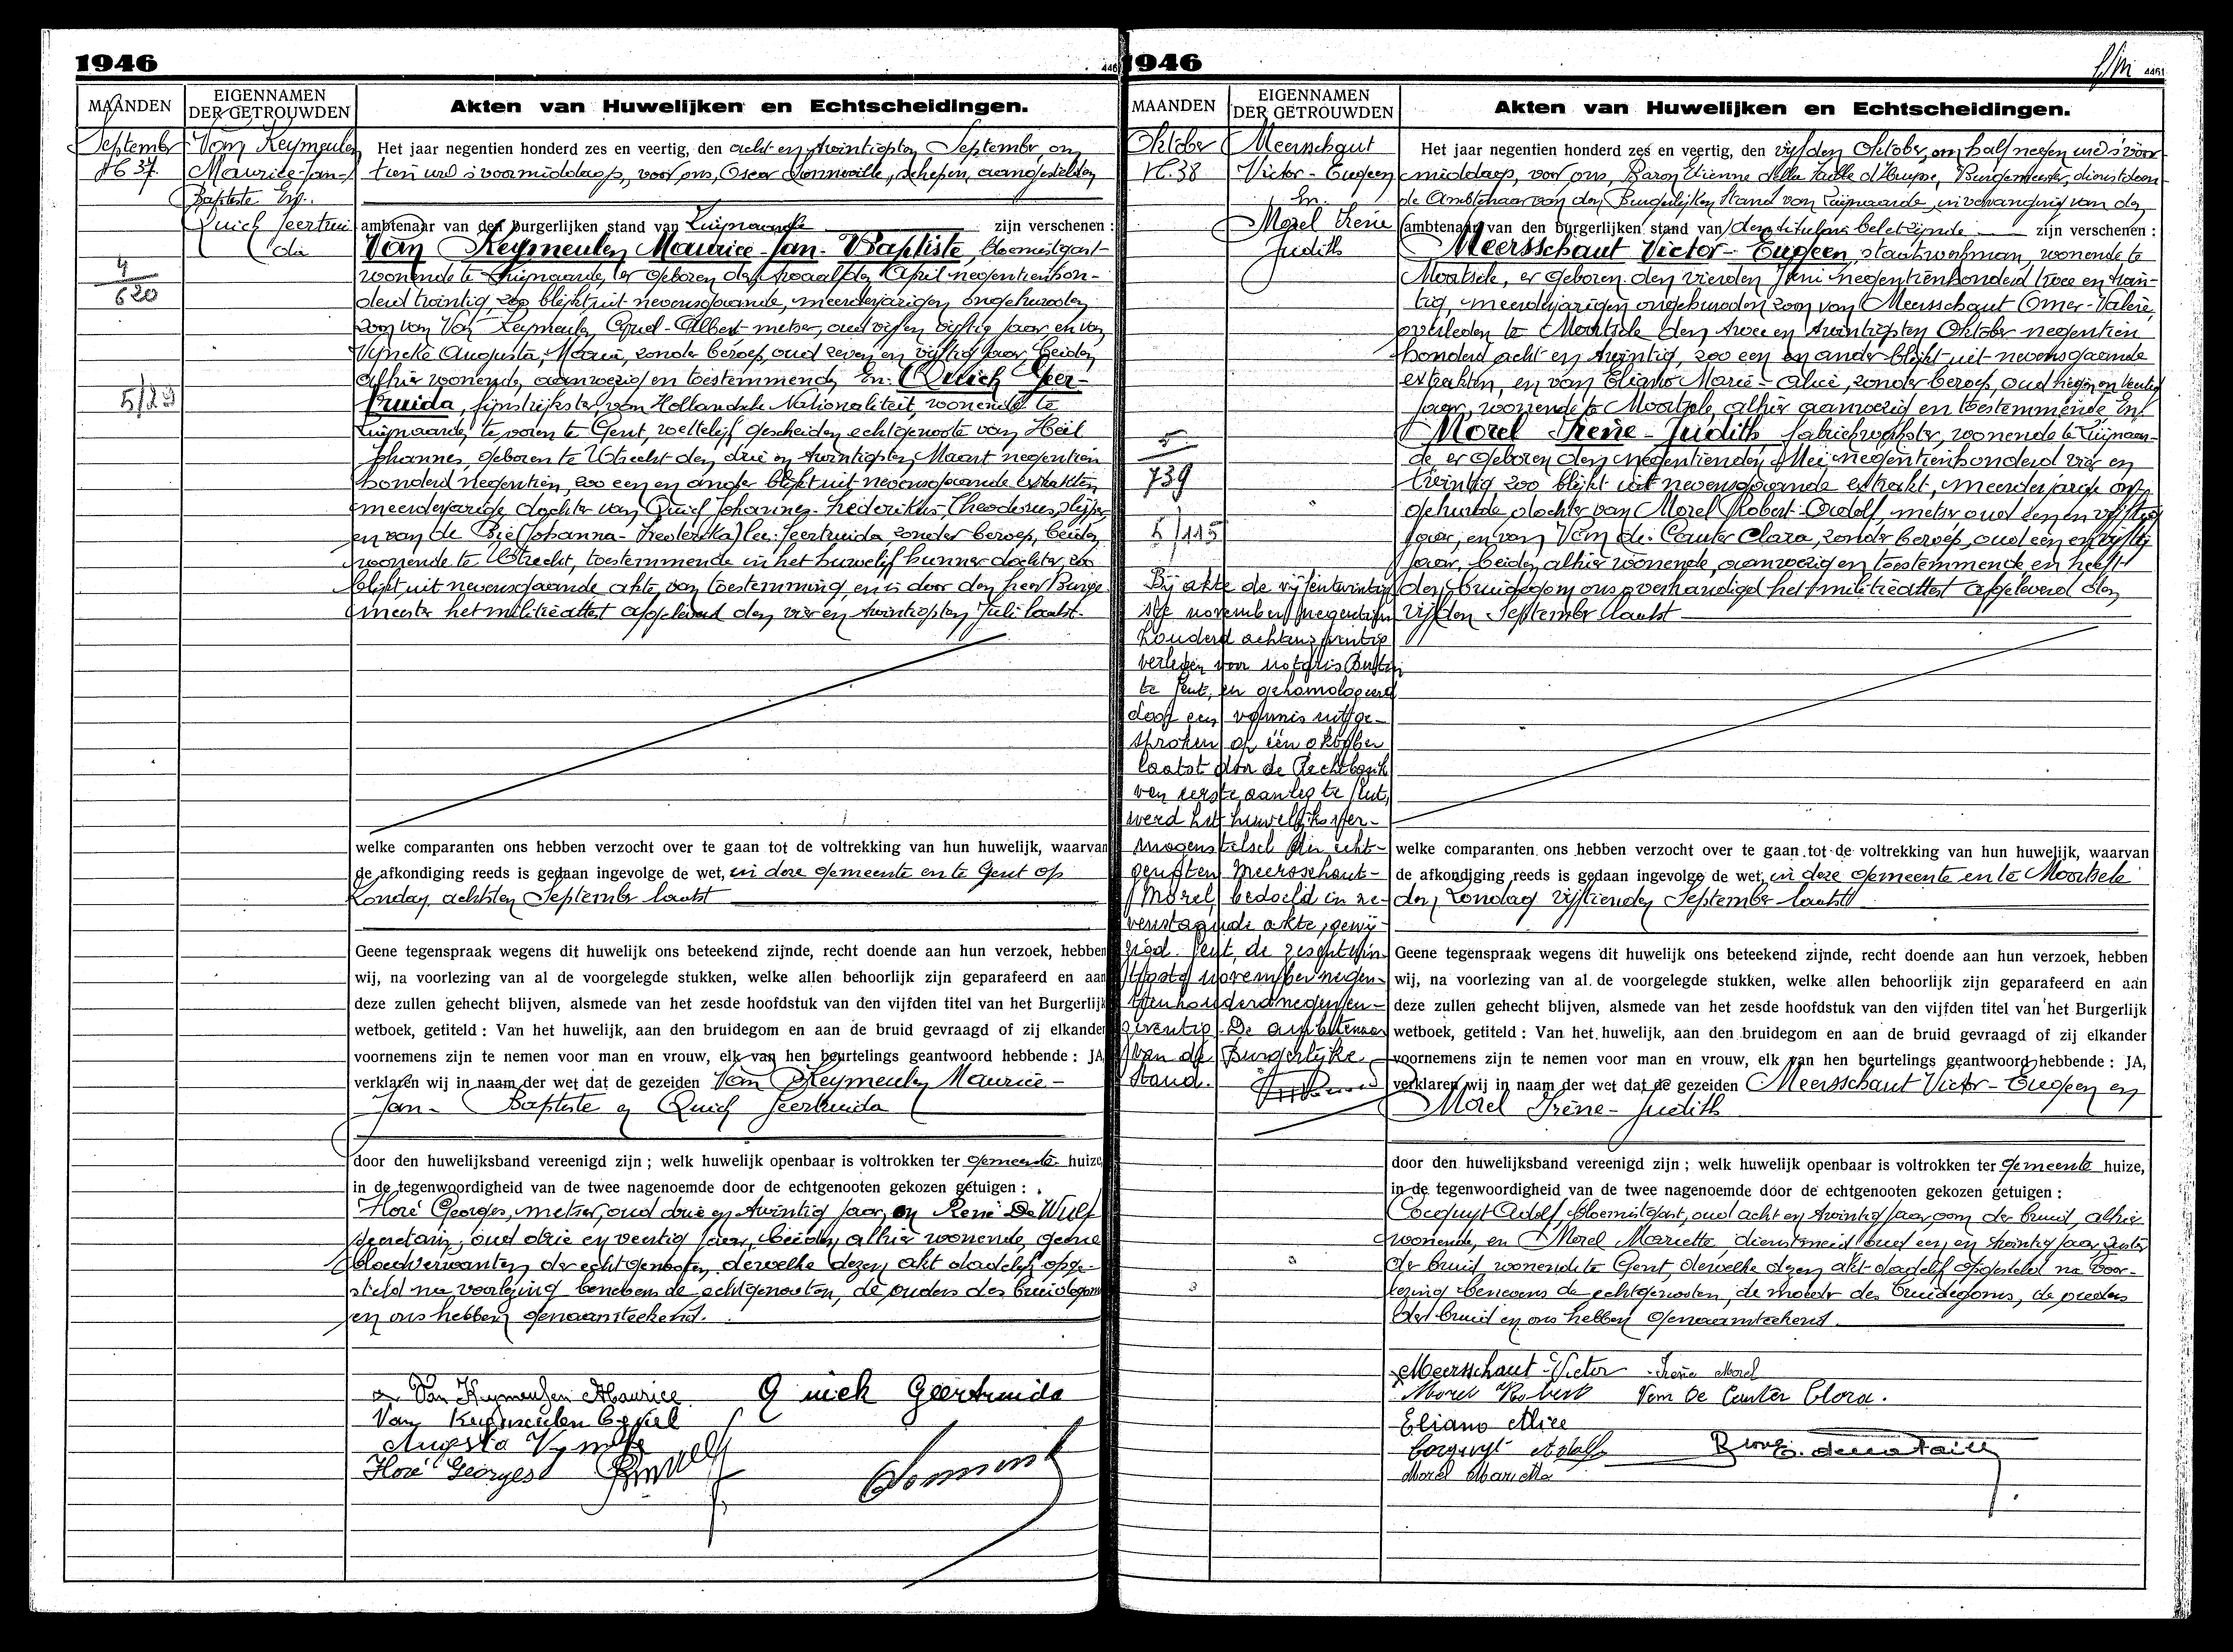 1946
446
MAANDEN
EIGENNAMEN
DER GETROUWDEN
Akten van Huwelijken en Echtscheidingen.
September
N 37
Van Keymeulen
Maurice-Jan-
Baptiste En.
Quick Geertrui
da
4
620
5/29
Het jaar negentien honderd zes en veertig, den acht en twintigsten September, om
tien ure 's voormiddags, voor ons, Oscar schepen, aangestelden
ambtenaar van den burgerlijken stand van Zwijnaarde zijn verschenen :
Van Keymeulen Maurice-Jan-Baptiste, bloemistgast
wonende te Zwijnaarde, er geboren den twaalfden April negentienhon-
derd twintig, zoo blijkt uit nevensgaande, meerderjarigen ongehuwden
zoon van Van Keymeulen Albert metser, oud vijf en vijftig jaar, en van
Vyncke Augusta, Maria, zonder beroep, oud zeven en vijftig jaar, beiden
alhier wonende, aanwezig en toestemmend, En: Quick Geer-
truida, fijnstrijkster, van Hollandsche Nationaliteit, wonende te
Zwijnaarde, te voren te Gent, wettelijk gescheiden echtgenoote van Heil
Johannes, geboren te Utrecht den drie en twintigsten Maart negentien
honderd negentien, zoo een en ander blijkt uit nevensgaande extrakten
meerderjarige dochter van Quick Johannes-Frederikus-Theodorus, slijper
en van de Bie (Johanna-Frederika) Geertruida, zonder beroep, beiden
wonende te Utrecht, toestemmende in het huwelijk hunner dochter, zoo
blijkt uit nevensgaande akte van toestemming, en is door den heer Burge
meester het militieattest afgeleverd den vier en twintigsten Juli laatst.
welke comparanten ons hebben verzocht over te gaan tot de voltrekking van hun huwelijk, waarvan
de afkondiging reeds is gedaan ingevolge de wet, in deze gemeente en te Gent op
Zondag achtsten September laatst
Geene tegenspraak wegens dit huwelijk ons beteekend zijnde, recht doende aan hun verzoek, hebben
wij, na voorlezing van al de voorgelegde stukken, welke allen behoorlijk zijn geparafeerd en aan
deze zullen gehecht blijven, alsmede van het zesde hoofdstuk van den vijfden titel van het Burgerlijk
wetboek, getiteld : Van het huwelijk, aan den bruidegom en aan de bruid gevraagd of zij elkander
voornemens zijn te nemen voor man en vrouw, elk van hen beurtelings geantwoord hebbende : JA
verklaren wij in naam der wet dat de gezeiden Van Keymeulen Maurice-
Jan-Baptiste en Quick Geertruida
door den huwelijksband vereenigd zijn ; welk huwelijk openbaar is voltrokken ter gemeente huize
in de tegenwoordigheid van de twee nagenoemde door de echtgenooten gekozen getuigen :
Horé Georges, metser, oud drie en twintig jaar, en René De Wulf
secretaris, oud drie en veertig jaar, beiden alhier wonende, geene
bloedverwanten der echtgenooten, dewelke dezen akt dadelijk opge-
steld na voorlezing benevens de echtgenooten, de ouders des bruidegoms
en ons hebben genaamteekend.
Van Keymeulen Maurice
Quick Geertruida
Van Keymeulen
Augusta Vyncke
Horé Georges
1946
4461
MAANDEN
EIGENNAMEN
DER GETROUWDEN
Akten van Huwelijken en Echtscheidingen.
Oktober
N. 38
Meersschaut
Victor-Eugeen
En.
Morel Irene
Judith
5
739
5/115
Het jaar negentien honderd zes en veertig, den vijfden Oktober, om half negen ure 's voor
middags, voor ons, Baron Etienne della Faille d'Huysse, Burgemeester, dienstdoen
de Ambtenaar van den Burgerlijken stand van Zwijnaarde, in vervanging van den
ambtenaar van den burgerlijken stand van den titularis belet zijnde zijn verschenen :
Meersschaut Victor-Eugeen, wonende te
Moortsele, er geboren den vierden Juni negentienhonderd twee en twin-
tig, meerderjarigen ongehuwden zoon van Meersschaut Omer-Valere,
overleden te Moortsele den twee en twintigsten Oktober negentien
honderd acht en twintig, zoo een en ander blijkt uit nevensgaande
extrakten, en van Eliano Marie-Alice, zonder beroep, oud negen en veertig
jaar, wonende te Moortsele, alhier aanwezig en toestemmende, En:
Morel Irene-Judith fabriekwerkster, wonende te Zwijnaar-
de er geboren den negentienden Mei negentienhonderd vier en
twintig zoo blijkt uit nevensgaande extrakt, meerderjarige on-
gehuwde dochter van Morel Robert-Adolf, metser oud een en vijftig
jaar, en van Van de Cauter Clara, zonder beroep, oud een en vijftig
jaar, beiden alhier wonende, aanwezig en toestemmende en heeft
den bruidegom ons overhandigd het militieattest afgeleverd den
vijfden September laatst
Bij akte de vijfentwintig
ste november negentien
honderd achtenzeventig
verleden voor notaris
te Gent, en gehomologeerd
door een vonnis uitge-
sproken op één oktober
laatst door de Rechtbank
van eerste aanleg te Gent,
werd het huwelijksver-
mogenstelsel der echt-
genoten Meersschaut-
Morel, bedoeld in ne-
venstaande akte, gewij-
zigd. Gent, de zesentwin-
tigste november negen-
tienhonderd negenen-
zeventig. De ambtenaar
van de Burgerlijke
stand.
welke comparanten ons hebben verzocht over te gaan tot de voltrekking van hun huwelijk, waarvan
de afkondiging reeds is gedaan ingevolge de wet, in deze gemeente en te Moortsele
den Zondag vijftienden September laatst
Geene tegenspraak wegens dit huwelijk ons beteekend zijnde, recht doende aan hun verzoek, hebben
wij, na voorlezing van al de voorgelegde stukken, welke allen behoorlijk zijn geparafeerd en aan
deze zullen gehecht blijven, alsmede van het zesde hoofdstuk van den vijfden titel van het Burgerlijk
wetboek, getiteld : Van het huwelijk, aan den bruidegom en aan de bruid gevraagd of zij elkander
voornemens zijn te nemen voor man en vrouw, elk van hen beurtelings geantwoord hebbende : JA,
verklaren wij in naam der wet dat de gezeiden Meersschaut Victor-Eugeen en
Morel Irène-Judith
door den huwelijksband vereenigd zijn ; welk huwelijk openbaar is voltrokken ter gemeente huize,
in de tegenwoordigheid van de twee nagenoemde door de echtgenooten gekozen getuigen :
Cocquyt Adolf, bloemistgast, oud acht en twintig jaar, oom der bruid, alhier
wonende, en Morel Mariette, dienstmeid oud een en twintig jaar, zuster
der bruid, wonende te Gent, dewelke dezen akt dadelijk opgesteld na voor-
lezing benevens de echtgenooten, de moeder des bruidegoms, de ouders
der bruid en ons hebben genaamteekend.
Meersschaut Victor Irène Morel
Morel Robert Van De Cauter Clara.
Eliano Alice
Cocquyt Adolf
Morel Mariette